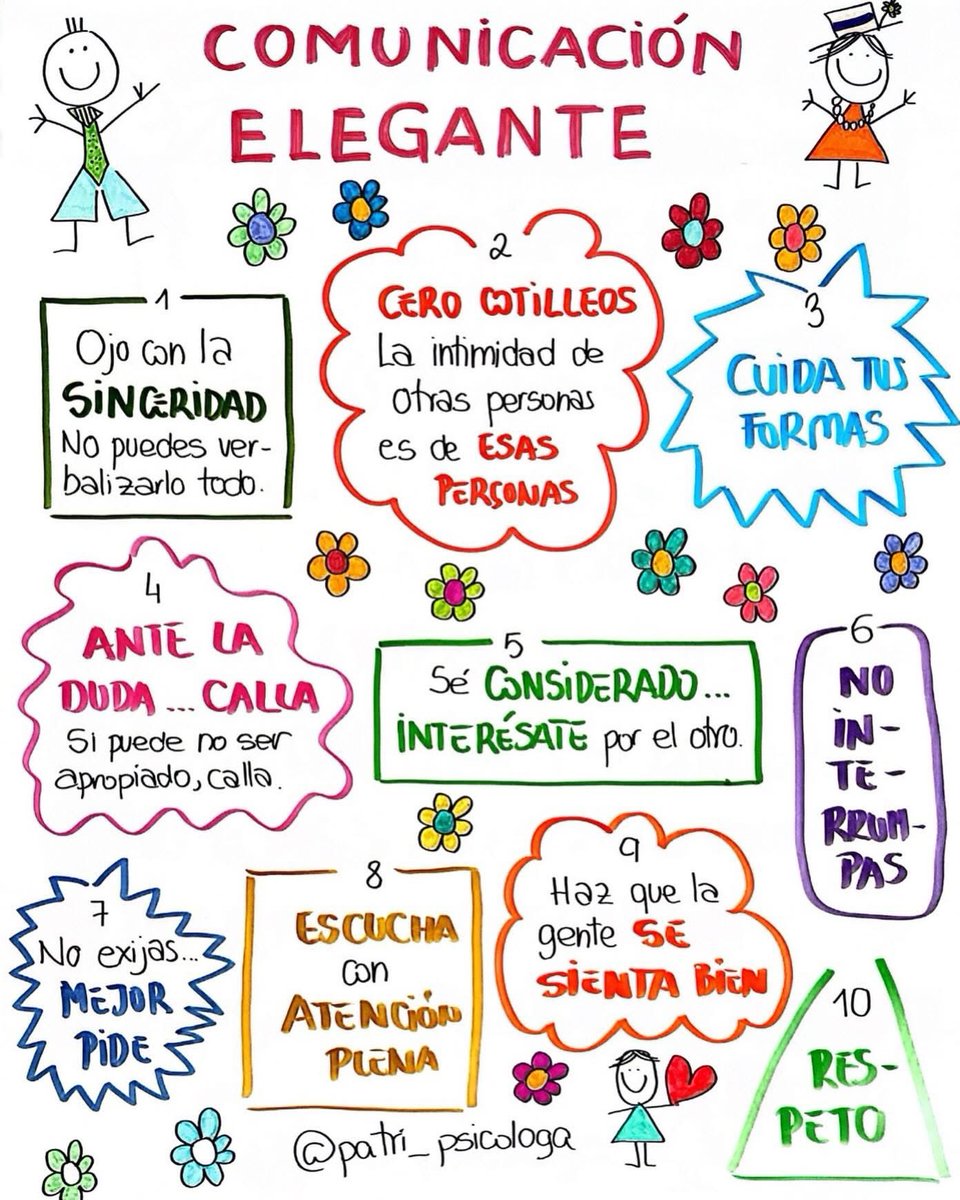 COMUNICACIÓN
ELEGANTE
1
Ojo con la
SINCERIDAD
No puedes ver-
balizarlo todo.
2
CERO COTILLEOS
La intimidad de
otras personas
es de ESAS
PERSONAS
3
CUIDA TUS
FORMAS
4
ANTE LA
DUDA... CALLA
Si puede no ser
apropiado, calla.
5
Sé CONSIDERADO...
INTERÉSATE por el otro.
6
NO
IN-
TE-
RRUM-
PAS
7
No exijas...
MEJOR
PIDE
8
ESCUCHA
con
ATENCIÓN
PLENA
9
Haz que la
gente SE
SIENTA BIEN
10
RES-
PETO
@patri_psicologa